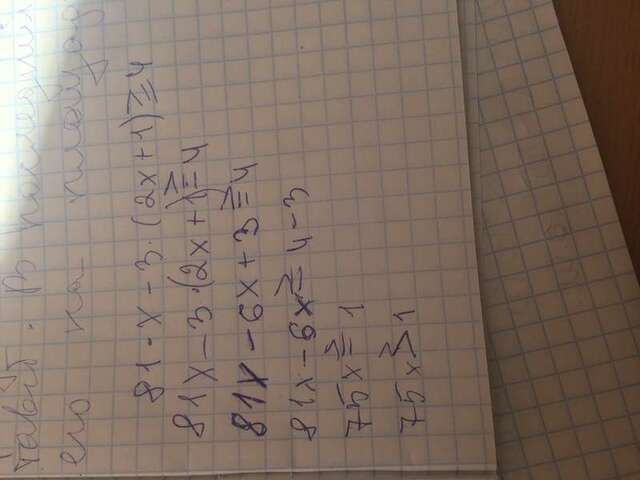 В последний
его на площад
81 · x - 3 · (2x + 1) ≥ 4
81x - 3 · (2x + 1) ≥ 4
81x - 6x + 3 ≥ 4
81x - 6x ≥ 4 - 3
75x ≥ 1
75x ≥ 1